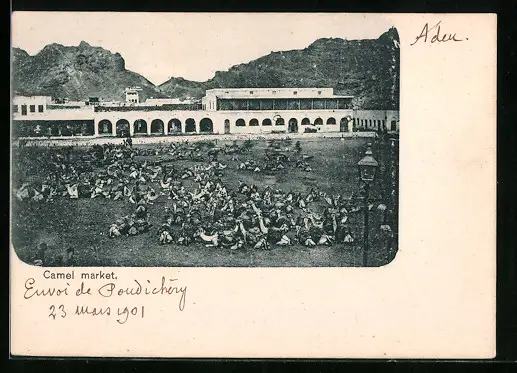 Aden.
Camel market.
Envoi de Pondichéry
23 mars 1901